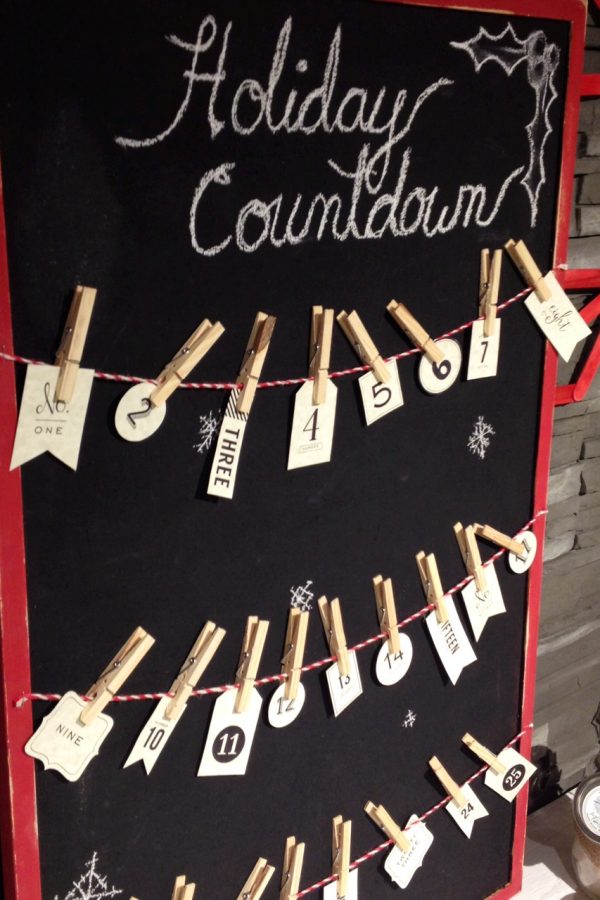 Holiday
Countdown
No.
ONE
2
THREE
4
5
6
7
eight
NINE
10
11
12
13
14
No.
25
24
TWENTY
THREE